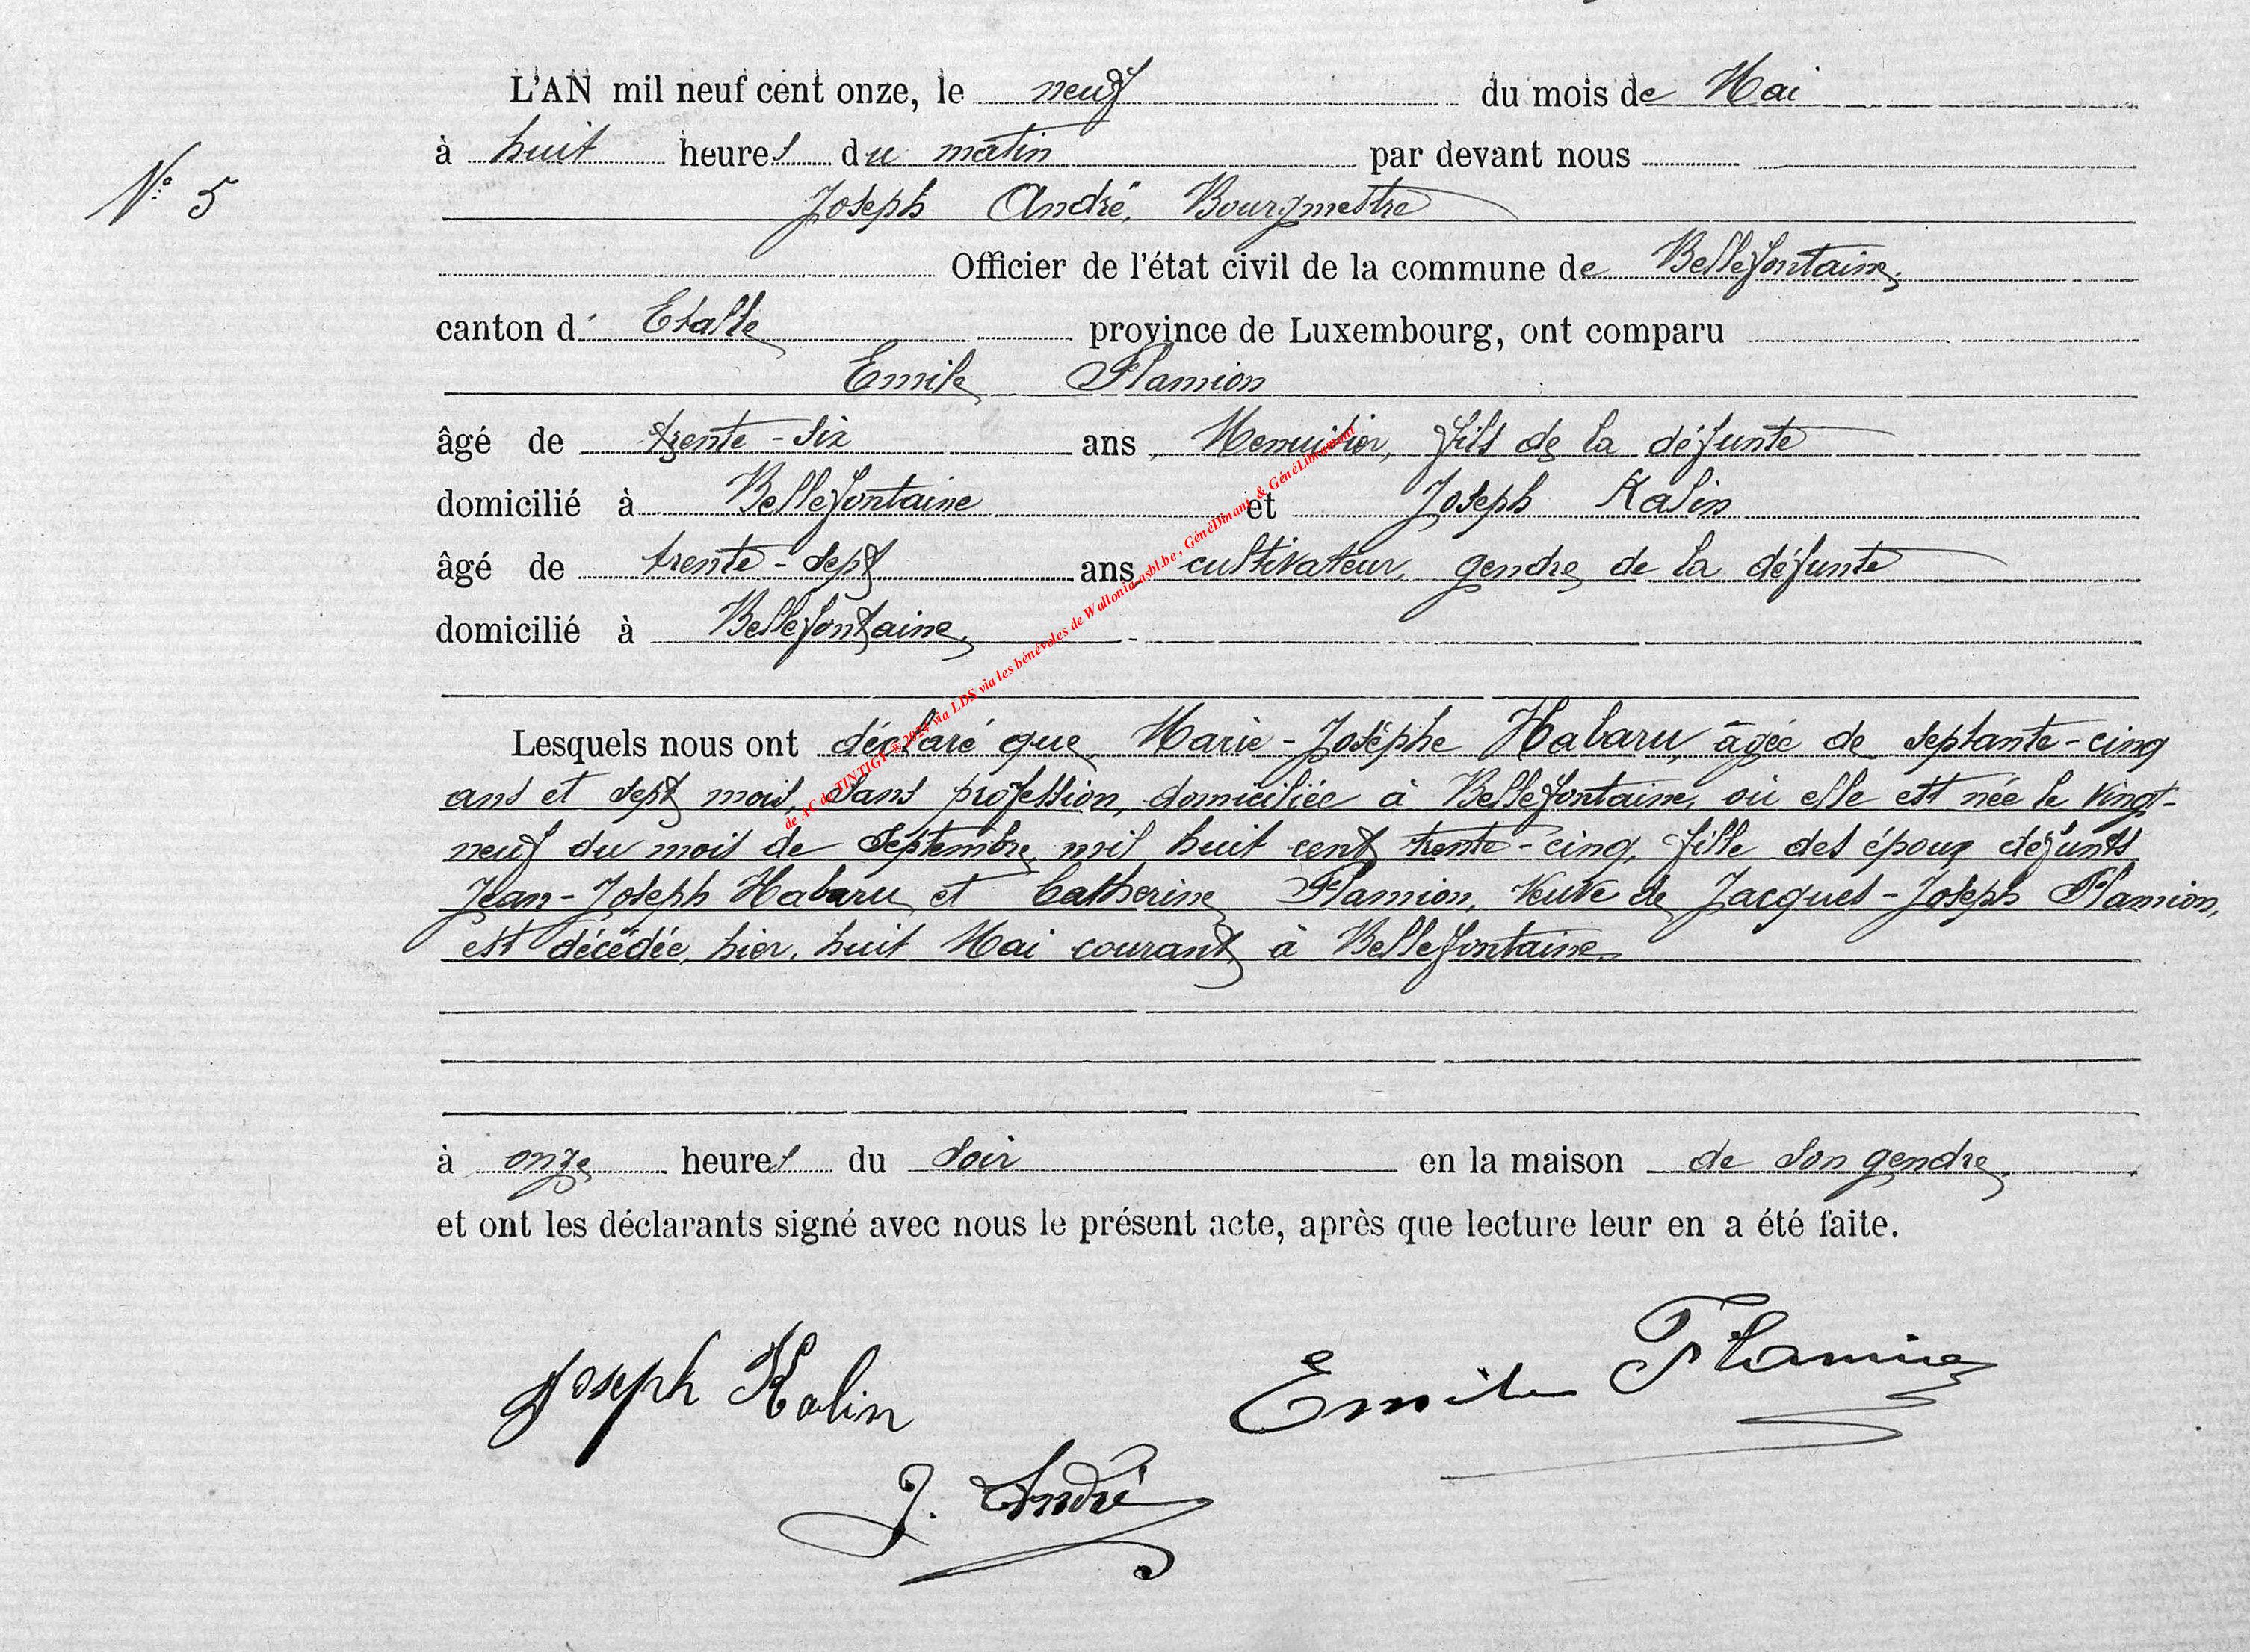 L'AN mil neuf cent onze, le neuf du mois de Mai
à huit heures du matin par devant nous
N° 5
Joseph André, Bourgmestre
Officier de l'état civil de la commune de Bellefontaine,
canton d' Etalle province de Luxembourg, ont comparu
Emile Flamion
âgé de trente-six ans, Menuisier, fils de la défunte
domicilié à Bellefontaine et Joseph Kalin
âgé de trente-sept ans cultivateur, gendre de la défunte
domicilié à Bellefontaine,
Lesquels nous ont déclaré que Marie-Josèphe Habaru, âgée de septante-cinq
ans et sept mois, sans profession, domiciliée à Bellefontaine, où elle est née le vingt-
neuf du mois de Septembre mil huit cent trente-cinq, fille des époux défunts
Jean-Joseph Habaru et Catherine Flamion, Veuve de Jacques-Joseph Flamion,
est décédée, hier, huit Mai courant à Bellefontaine
à onze heures du soir en la maison de son gendre,
et ont les déclarants signé avec nous le présent acte, après que lecture leur en a été faite.
Joseph Kalin
Emile Flamion
J. André
de AC de TINTIGNY @ 2024 via LDS via les bénévoles de Wallonia-asbl.be, GénéDinant & GénéLibramont